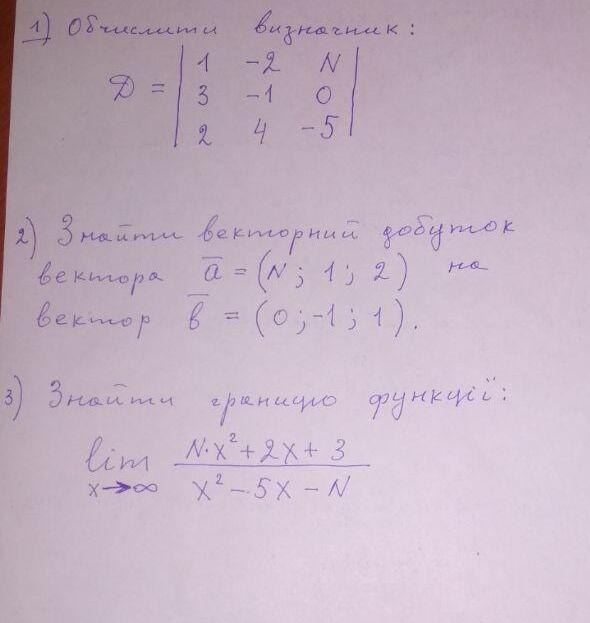 1) Обчислити визначник:
D = | 1 -2 N |
| 3 -1 0 |
| 2 4 -5 |
2) Знайти векторний добуток
вектора a̅ = (N; 1; 2) на
вектор b̅ = (0; -1; 1).
3) Знайти границю функції:
lim x→∞ (N·x² + 2x + 3) / (x² - 5x - N)